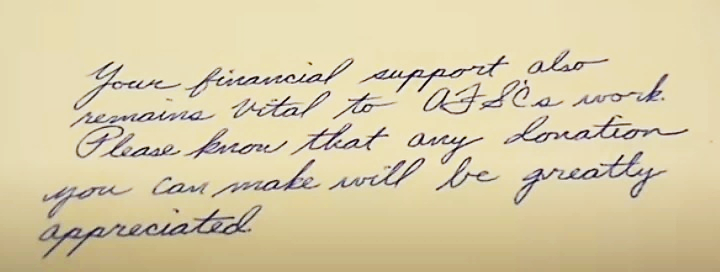 Your financial support also
remains vital to AFSC's work.
Please know that any donation
you can make will be greatly
appreciated.